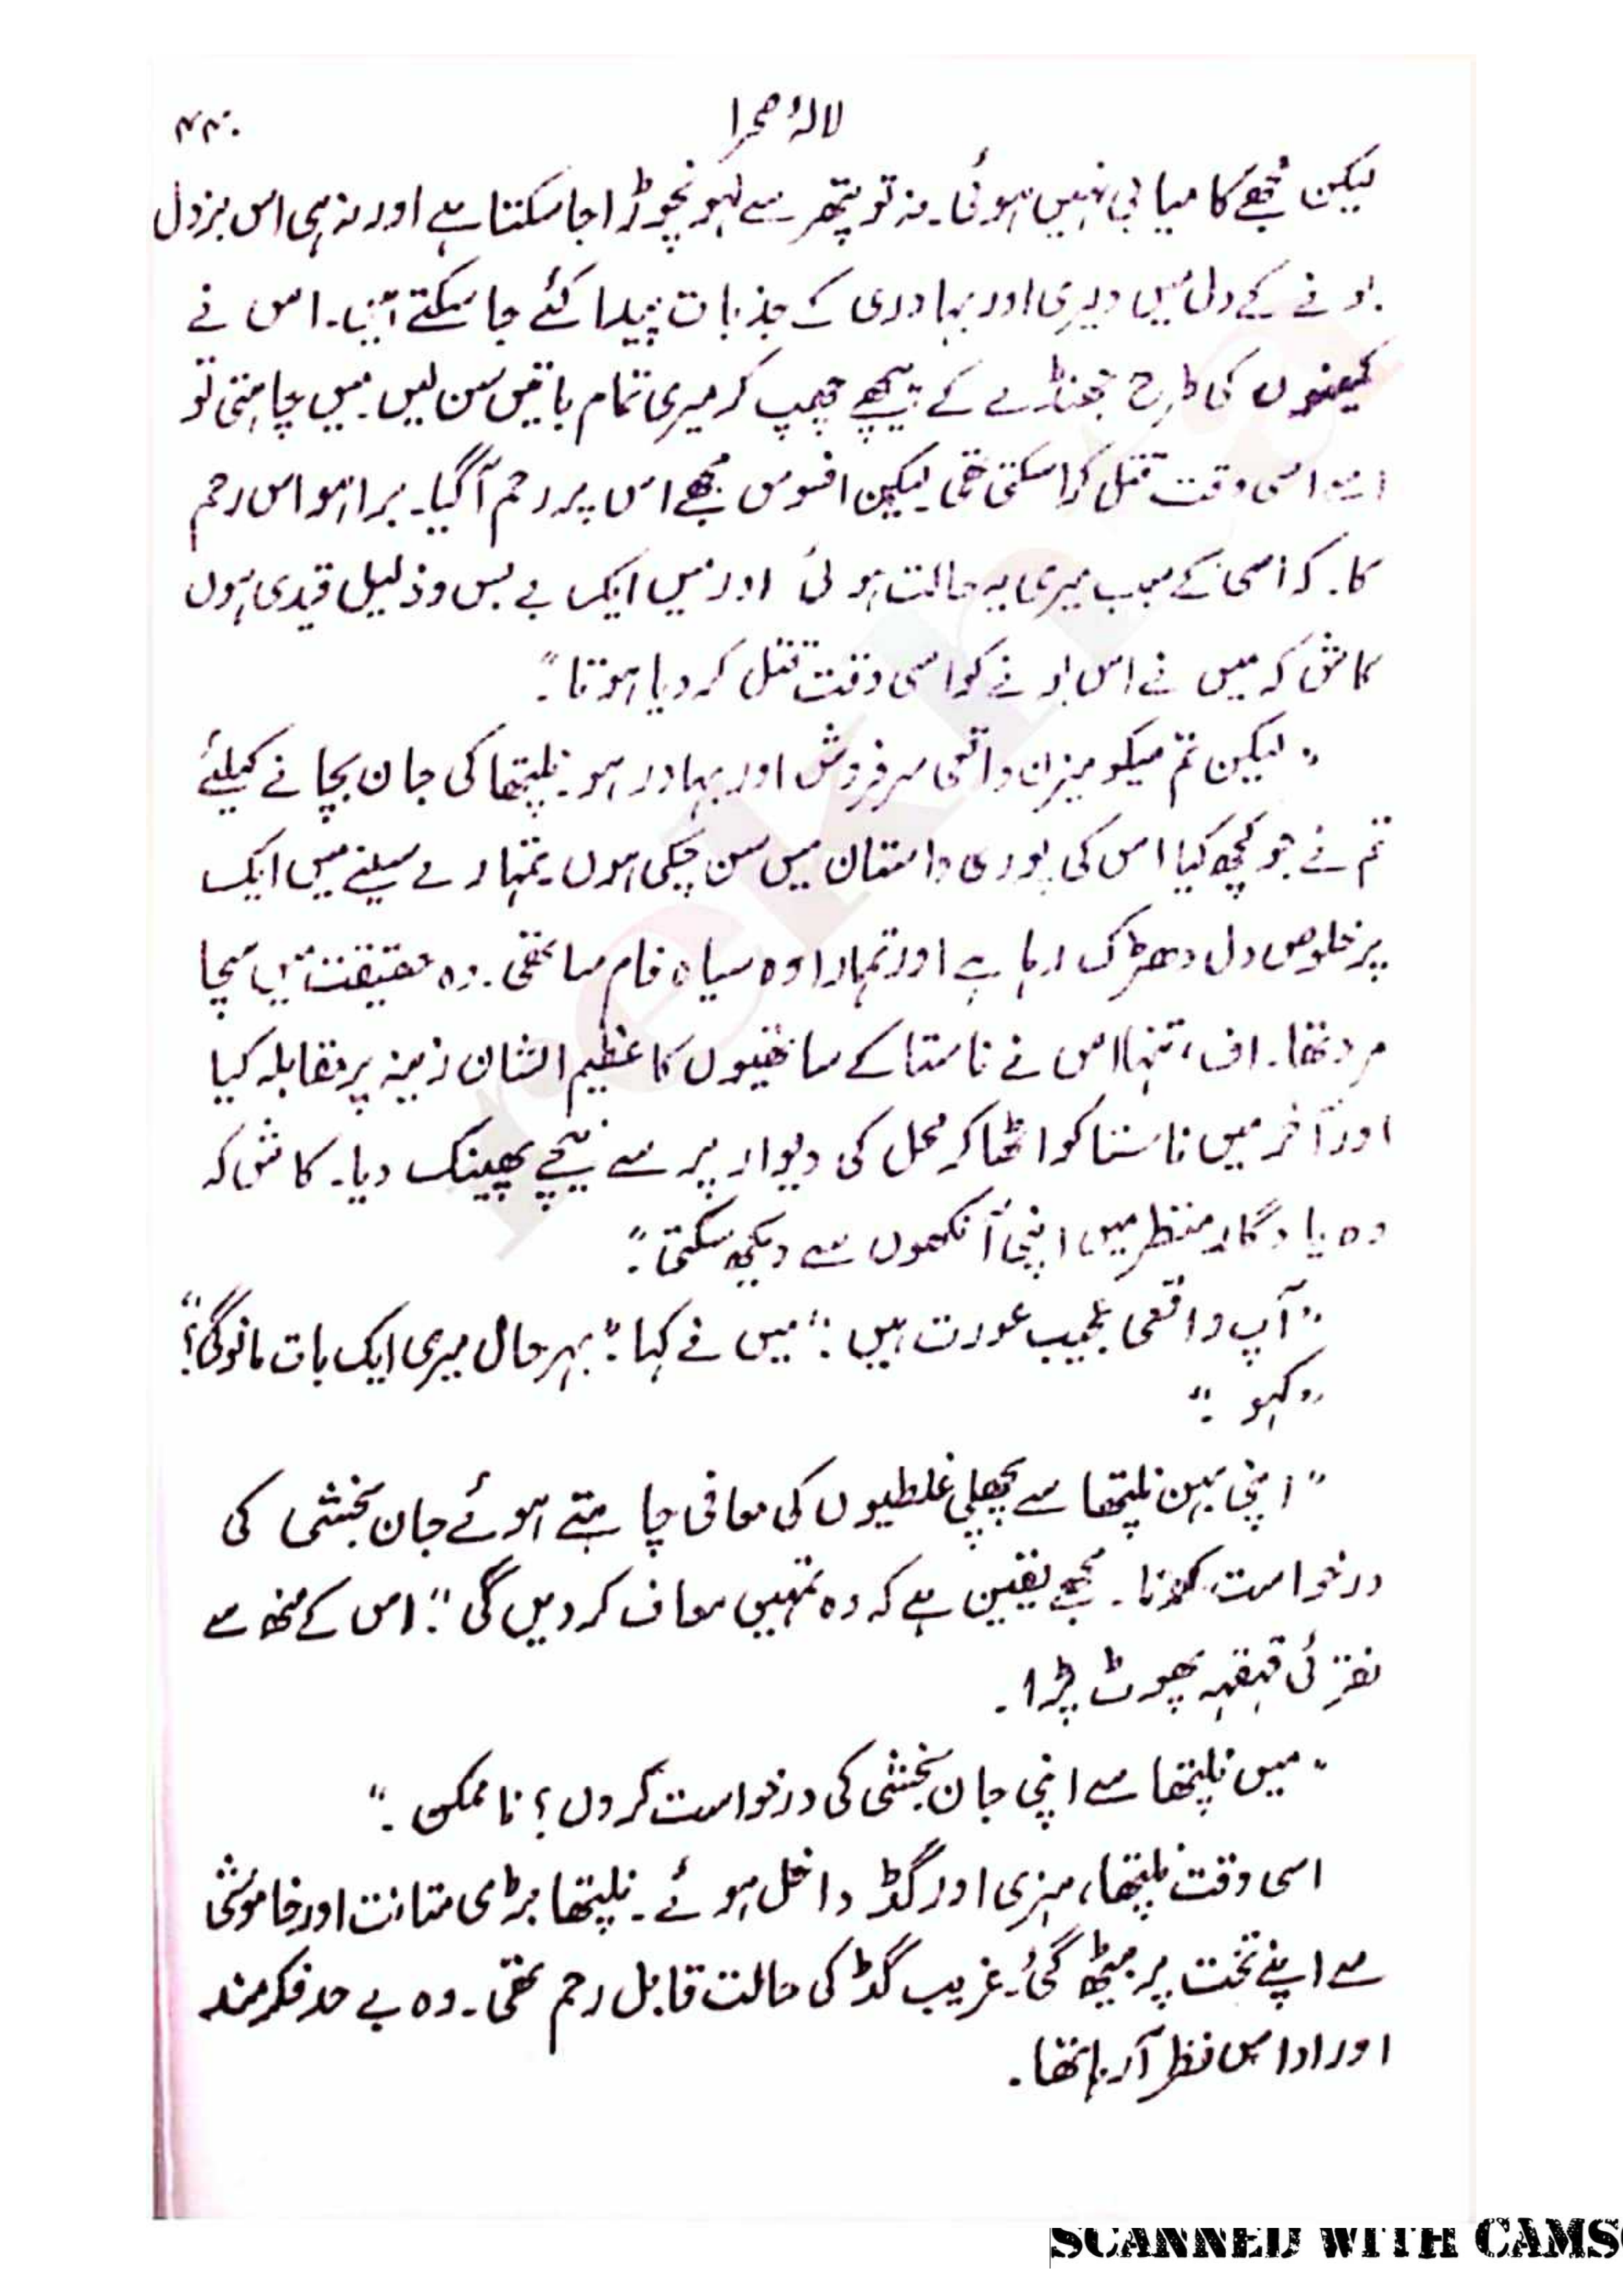 لالۂ صحرا
۴۴۰
لیکن مجھے کامیابی نہیں ہوئی۔ نہ تو پتھر سے لہو نچوڑا جا سکتا ہے اور نہ ہی اس بزدل
بونے کے دل میں دلیری اور بہادری کے جذبات پیدا کئے جا سکتے ہیں۔ اس نے
کمینوں کی طرح جھنڈے کے پیچھے چھپ کر میری تمام باتیں سن لیں۔ میں چاہتی تو
اسے اسی وقت قتل کرا سکتی تھی لیکن افسوس مجھے اس پر رحم آگیا۔ برا ہو اس رحم
کا۔ کہ اسی کے سبب میری یہ حالت ہوئی اور میں ایک بے بس و ذلیل قیدی ہوں
کاش کہ میں نے اس بونے کو اسی وقت قتل کر دیا ہوتا۔"
"لیکن تم میکومیزن واقعی سرفروش اور بہادر ہو۔ نلپتھا کی جان بچانے کیلئے
تم نے جو کچھ کیا اس کی پوری داستان میں سن چکی ہوں۔ تمہارے سینے میں ایک
پرخلوص دل دھڑک رہا ہے اور تمہارا وہ سیاہ فام ساتھی۔ وہ حقیقت میں سچا
مرد تھا۔ اف، تنہا اس نے ناستا کے ساتھیوں کا عظیم الشان زینہ پر مقابلہ کیا
اور آخر میں ناستا کو اٹھا کر محل کی دیوار پر سے نیچے پھینک دیا۔ کاش کہ
وہ یادگار منظر میں اپنی آنکھوں سے دیکھ سکتی۔"
"آپ واقعی عجیب عورت ہیں۔" میں نے کہا۔ "بہرحال میری ایک بات مانوگی؟"
"کہو۔"
"اپنی بہن نلپتھا سے پچھلی غلطیوں کی معافی چاہتے ہوئے جان بخشی کی
درخواست کرنا۔ مجھے یقین ہے کہ وہ تمہیں معاف کر دیں گی۔" اس کے منھ سے
نقرئی قہقہہ پھوٹ پڑا۔
"میں نلپتھا سے اپنی جان بخشی کی درخواست کروں؟ ناممکن۔"
اسی وقت نلپتھا، ہنری اور گڈ داخل ہوئے۔ نلپتھا بڑی متانت اور خاموشی
سے اپنے تخت پر بیٹھ گئی۔ غریب گڈ کی حالت قابل رحم تھی۔ وہ بے حد فکرمند
اور اداس نظر آ رہا تھا۔
rekhta
SCANNED WITH CAMS